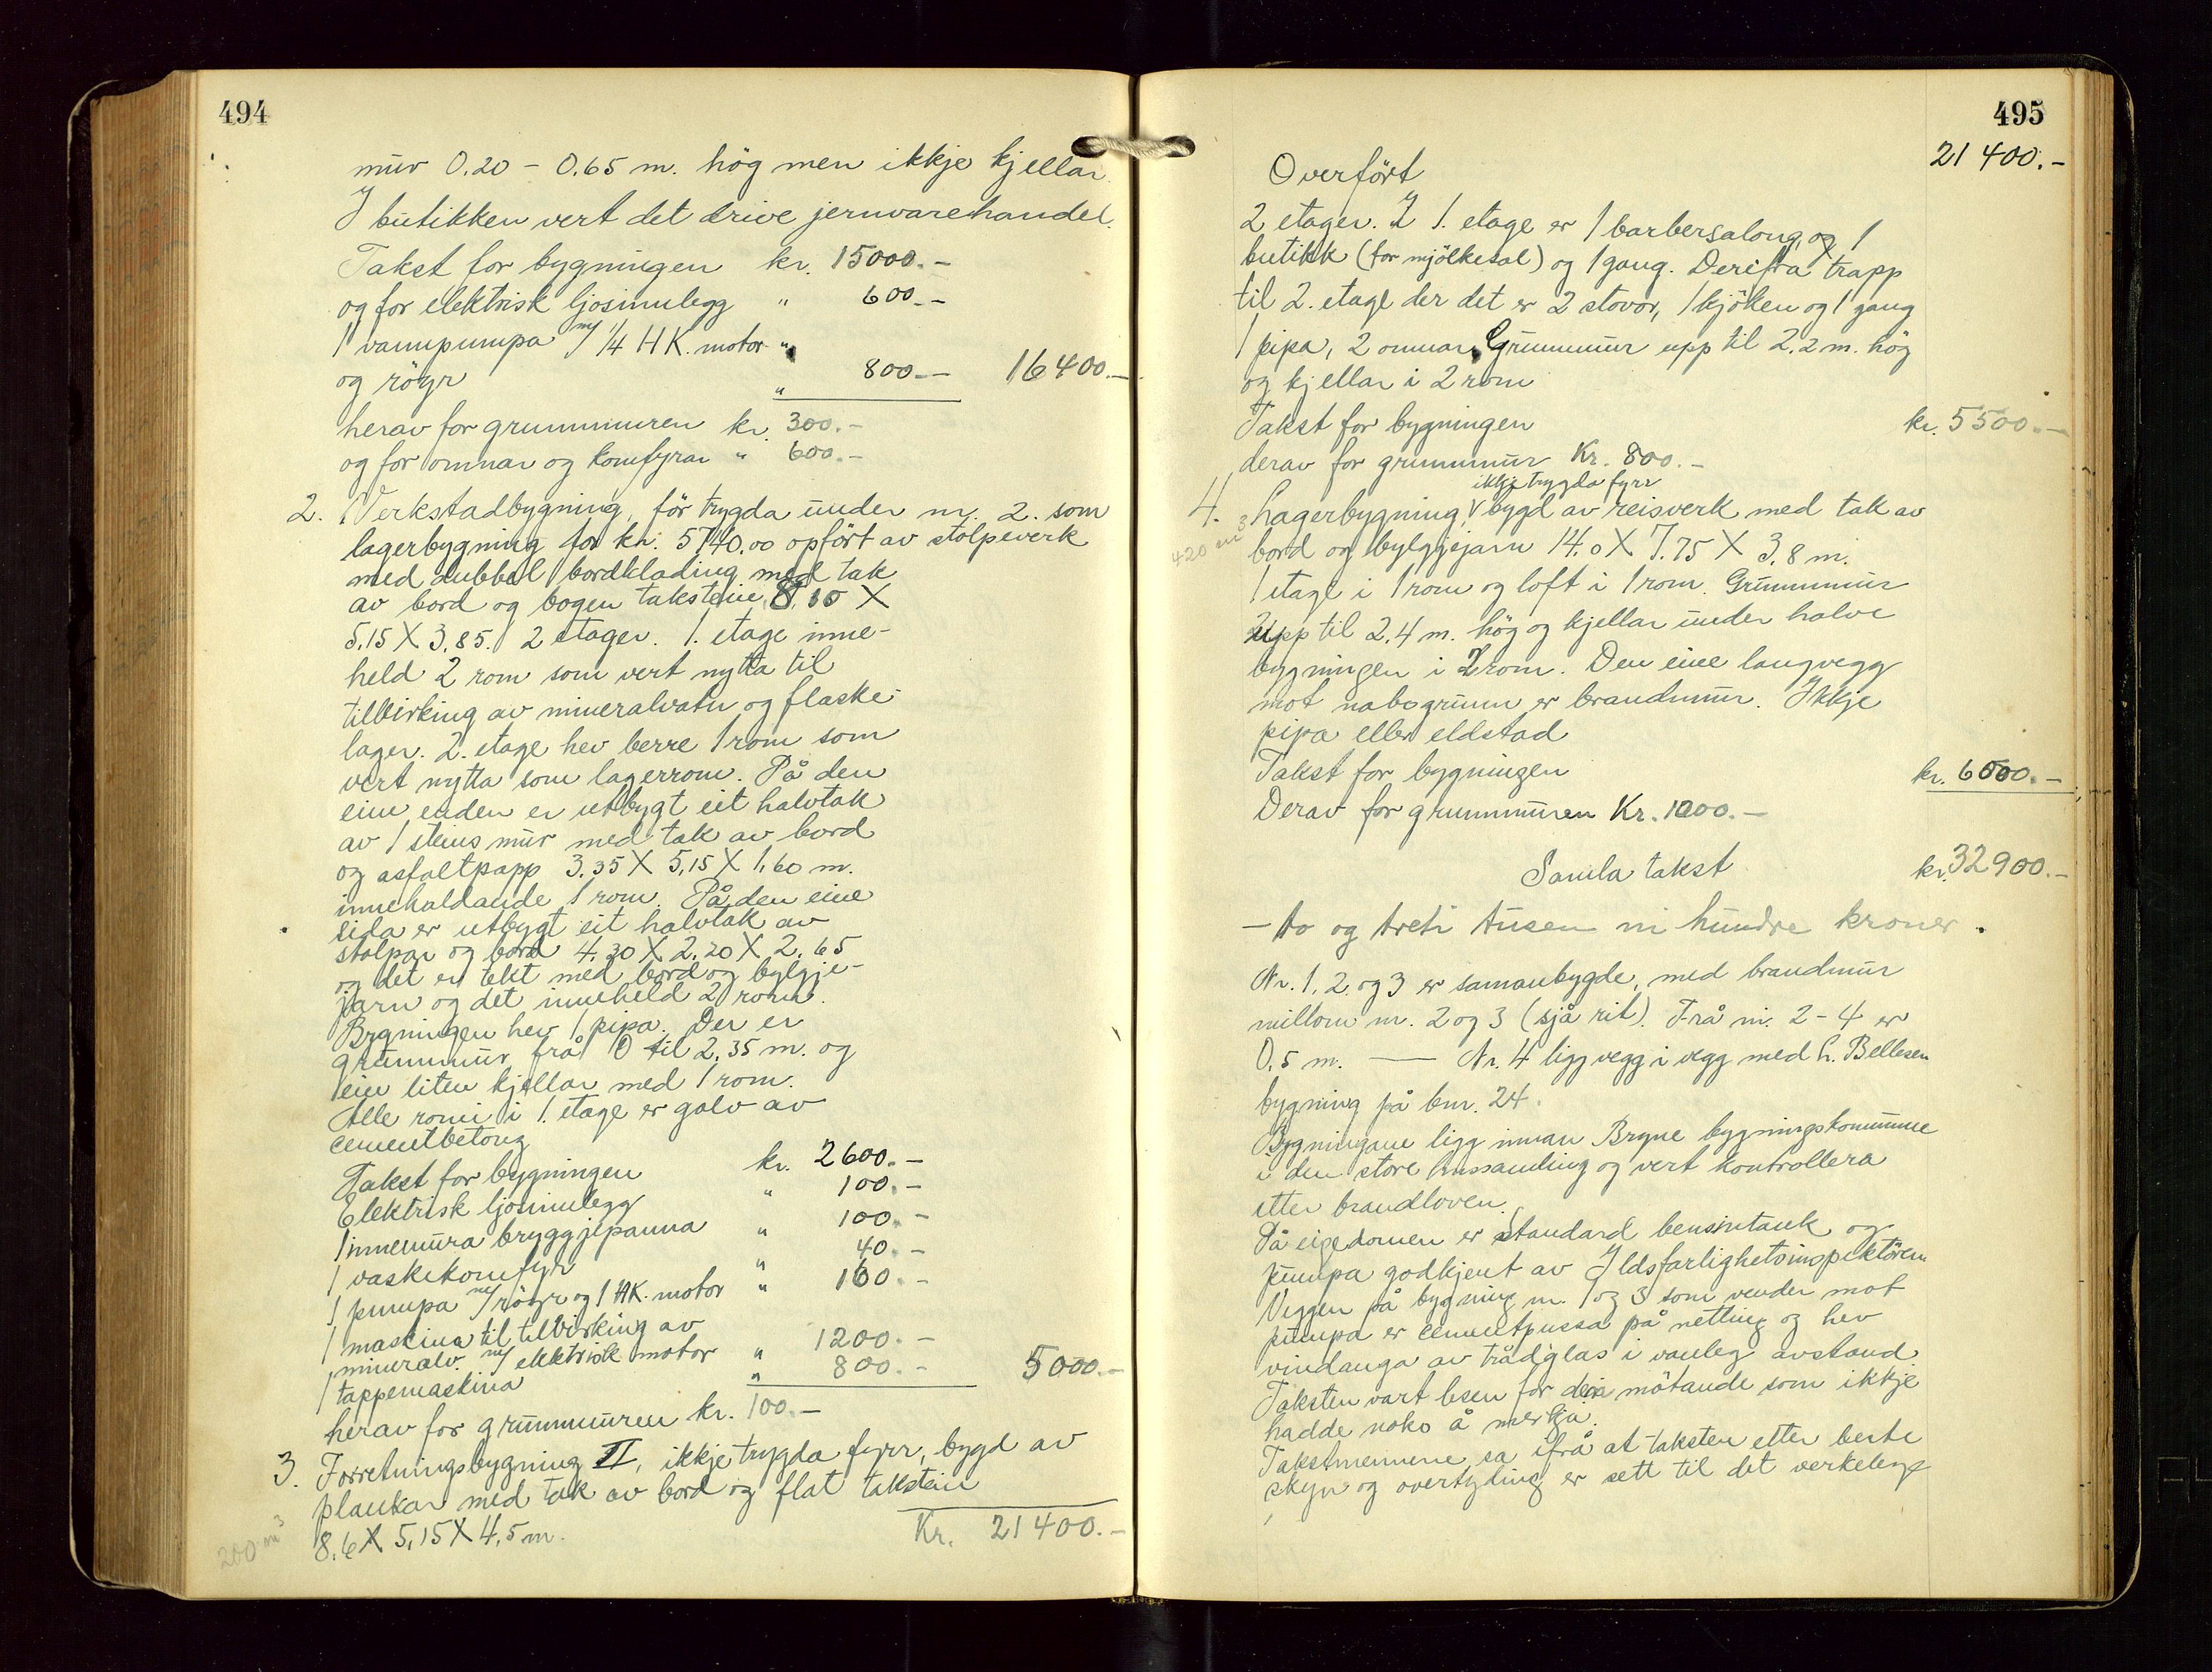 494
mur 0.20 - 0.65 m. hög men ikkje kjellar.
I butikken vert det drive jernvarehandel.
Takst for bygningen kr. 15000.-
og for elektrisk ljosinnlegg " 600.-
1 vannpumpa m/ 1/4 HK. motor "
og röyr " 800.- 16400.-
herav for grunnmuren kr. 300.-
og for omnar og komfyrar " 600.-
2. Verkstadbygning, för trygda under nr. 2. som
lagerbygning for kr. 5740.00 opfört av stolpeverk
med dubbel bordklading med tak
av bord og bogen takstein 8.10 X
5.15 X 3.85. 2 etager. 1. etage inne-
held 2 rom som vert nytta til
tilvirking av mineralvatn og flaske-
lager. 2. etage hev berre 1 rom som
vert nytta som lagerrom. På den
eine enden er utbygt eit halvtak
av 1 steins mur med tak av bord
og asfaltpapp 3.35 X 5,15 X 1,60 m.
innehaldande 1 rom. På den eine
sida er utbygt eit halvtak av
stolpar og bord 4.30 X 2.20 X 2.65
og det er tekt med bord og bylgje-
jarn og det inneheld 2 rom.
Bygningen hev 1 pipa. Der er
grunnmur frå 0 til 2,35 m. og
ein liten kjellar med 1 rom.
Alle romi i 1. etage er golv av
cementbetong
Takst for bygningen kr. 2600.-
Elektrisk ljosinnlegg " 100.-
1 innemura bryggjepanna " 100.-
1 vaskekomfyr " 40.-
1 pumpa m/ röyr og 1 HK. motor " 160.-
1 maskina til tilvirking av
mineralv. m/ elektrisk motor " 1200.-
1 tappemaskina " 800.- 5000.-
herav for grunnmuren kr. 100.-
3. Forretningsbygning II, ikkje trygda fyrr, bygd av
plankar med tak av bord og flat takstein
200 m3 8.6 X 5,15 X 4,5 m. Kr. 21400.-
495
Overfört 21400.-
2 etager. I 1. etage er 1 barbersalong, og 1
butikk (for mjölkesal) og 1 gang. Derifra trapp
til 2. etage der det er 2 stovor, 1 kjöken og 1 gang
1 pipa, 2 omnar. Grunnmur upp til 2.2 m. hög
og kjellar i 2 rom
Takst for bygningen kr. 5500.-
derav for grunnmur Kr. 800.-
ikkje trygda fyrr
4. Lagerbygning, V bygd av reisverk med tak av
420 m3 bord og bylgjejarn 14.0 X 7.75 X 3.8 m.
1 etage i 1 rom og loft i 1 rom. Grunnmur
upp til 2.4 m. hög og kjellar under halve
bygningen i 2 rom. Den eine langvegg
mot nabogrunn er brandmur. Ikkje
pipa eller eldstad
Takst for bygningen kr. 6000.-
Derav for grunnmuren Kr. 1000.-
Samla takst kr. 32900.-
- to og treti tusen ni hundre kroner.
Nr. 1, 2 og 3 er samanbygde, med brandmur
millom nr. 2 og 3 (sjå rit). Frå nr. 2-4 er
0,5 m. — Nr. 4 ligg vegg i vegg med L. Bellesen
bygning på bnr. 24.
Bygningane ligg innan Bryne bygningskommune
i den store hussamling og vert kontrollera
etter brandloven.
På eigedomen er standard bensintank og
pumpa godkjent av Ildsfarlighetsinspektören.
Veggen på bygning nr. 1 og 3 som vender mot
pumpa er cementpussa på netting og hev
vindauga av trådglas i vanleg avstand
Taksten vart lesen for dei mötande som ikkje
hadde noko å merkja.
Takstmennene sa ifrå at taksten etter beste
skyn og overtyding er sett til det verkelege